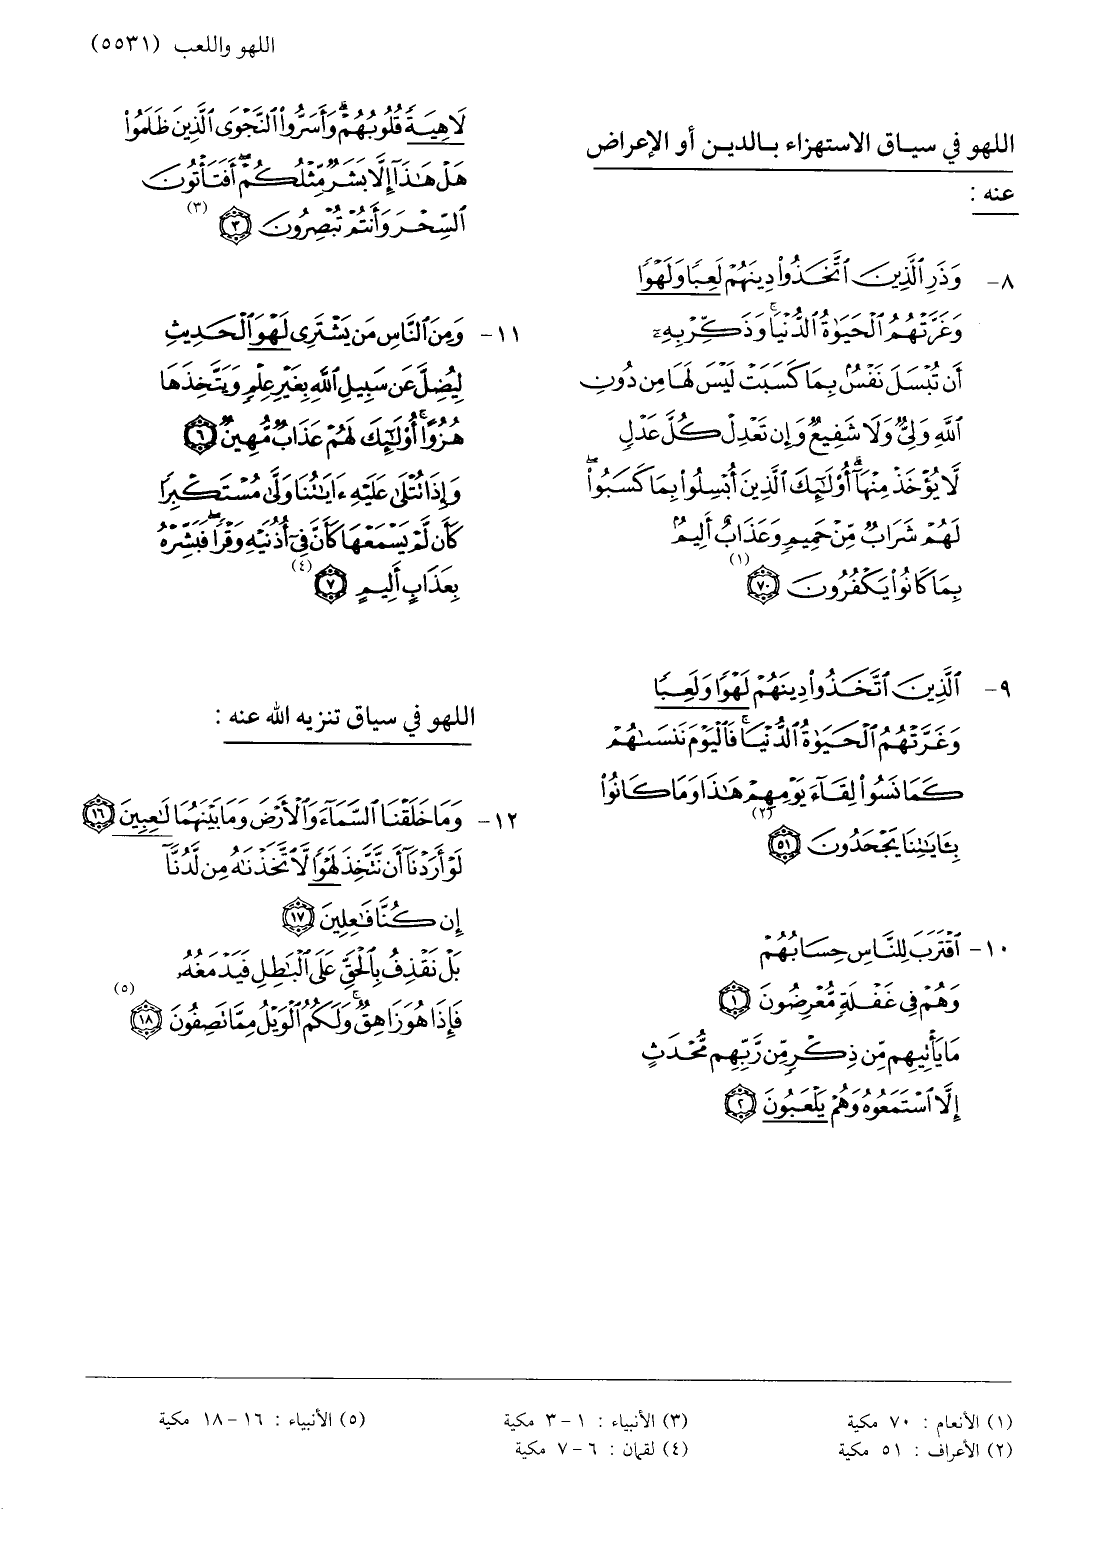 اللهو واللعب (٥٥٣١)
اللهو في سياق الاستهزاء بالدين أو الإعراض
عنه :
٨- وَذَرِ ٱلَّذِينَ ٱتَّخَذُواْ دِينَهُمْ لَعِبًا وَلَهْوًا
وَغَرَّتْهُمُ ٱلْحَيَوٰةُ ٱلدُّنْيَا ۚ وَذَكِّرْ بِهِۦٓ
أَن تُبْسَلَ نَفْسٌۢ بِمَا كَسَبَتْ لَيْسَ لَهَا مِن دُونِ
ٱللَّهِ وَلِىٌّ وَلَا شَفِيعٌ وَإِن تَعْدِلْ كُلَّ عَدْلٍ
لَّا يُؤْخَذْ مِنْهَآ ۗ أُوْلَـٰٓئِكَ ٱلَّذِينَ أُبْسِلُواْ بِمَا كَسَبُواْ ۖ
لَهُمْ شَرَابٌ مِّنْ حَمِيمٍ وَعَذَابٌ أَلِيمٌۢ
بِمَا كَانُواْ يَكْفُرُونَ ﴿٧٠﴾ (١)
٩- ٱلَّذِينَ ٱتَّخَذُواْ دِينَهُمْ لَهْوًا وَلَعِبًا
وَغَرَّتْهُمُ ٱلْحَيَوٰةُ ٱلدُّنْيَا ۚ فَٱلْيَوْمَ نَنسَىٰهُمْ
كَمَا نَسُواْ لِقَآءَ يَوْمِهِمْ هَـٰذَا وَمَا كَانُواْ
بِـَٔايَـٰتِنَا يَجْحَدُونَ ﴿٥١﴾ (٢)
١٠- ٱقْتَرَبَ لِلنَّاسِ حِسَابُهُمْ
وَهُمْ فِى غَفْلَةٍ مُّعْرِضُونَ ﴿١﴾
مَا يَأْتِيهِم مِّن ذِكْرٍ مِّن رَّبِّهِم مُّحْدَثٍ
إِلَّا ٱسْتَمَعُوهُ وَهُمْ يَلْعَبُونَ ﴿٢﴾
لَاهِيَةً قُلُوبُهُمْ ۗ وَأَسَرُّواْ ٱلنَّجْوَى ٱلَّذِينَ ظَلَمُواْ
هَلْ هَـٰذَآ إِلَّا بَشَرٌ مِّثْلُكُمْ ۖ أَفَتَأْتُونَ
ٱلسِّحْرَ وَأَنتُمْ تُبْصِرُونَ ﴿٣﴾ (٣)
١١- وَمِنَ ٱلنَّاسِ مَن يَشْتَرِى لَهْوَ ٱلْحَدِيثِ
لِيُضِلَّ عَن سَبِيلِ ٱللَّهِ بِغَيْرِ عِلْمٍ وَيَتَّخِذَهَا
هُزُوًا ۚ أُوْلَـٰٓئِكَ لَهُمْ عَذَابٌ مُّهِينٌ ﴿٦﴾
وَإِذَا تُتْلَىٰ عَلَيْهِ ءَايَـٰتُنَا وَلَّىٰ مُسْتَكْبِرًا
كَأَن لَّمْ يَسْمَعْهَا كَأَنَّ فِىٓ أُذُنَيْهِ وَقْرًا ۖ فَبَشِّرْهُ
بِعَذَابٍ أَلِيمٍ ﴿٧﴾ (٤)
اللهو في سياق تنزيه الله عنه :
١٢- وَمَا خَلَقْنَا ٱلسَّمَآءَ وَٱلْأَرْضَ وَمَا بَيْنَهُمَا لَـٰعِبِينَ ﴿١٦﴾
لَوْ أَرَدْنَآ أَن نَّتَّخِذَ لَهْوًا لَّٱتَّخَذْنَـٰهُ مِن لَّدُنَّآ
إِن كُنَّا فَـٰعِلِينَ ﴿١٧﴾
بَلْ نَقْذِفُ بِٱلْحَقِّ عَلَى ٱلْبَـٰطِلِ فَيَدْمَغُهُۥ
فَإِذَا هُوَ زَاهِقٌ ۚ وَلَكُمُ ٱلْوَيْلُ مِمَّا تَصِفُونَ ﴿١٨﴾ (٥)
(١) الأنعام : ٧٠ مكية
(٢) الأعراف : ٥١ مكية
(٣) الأنبياء : ١-٣ مكية
(٤) لقمان : ٦-٧ مكية
(٥) الأنبياء : ١٦-١٨ مكية